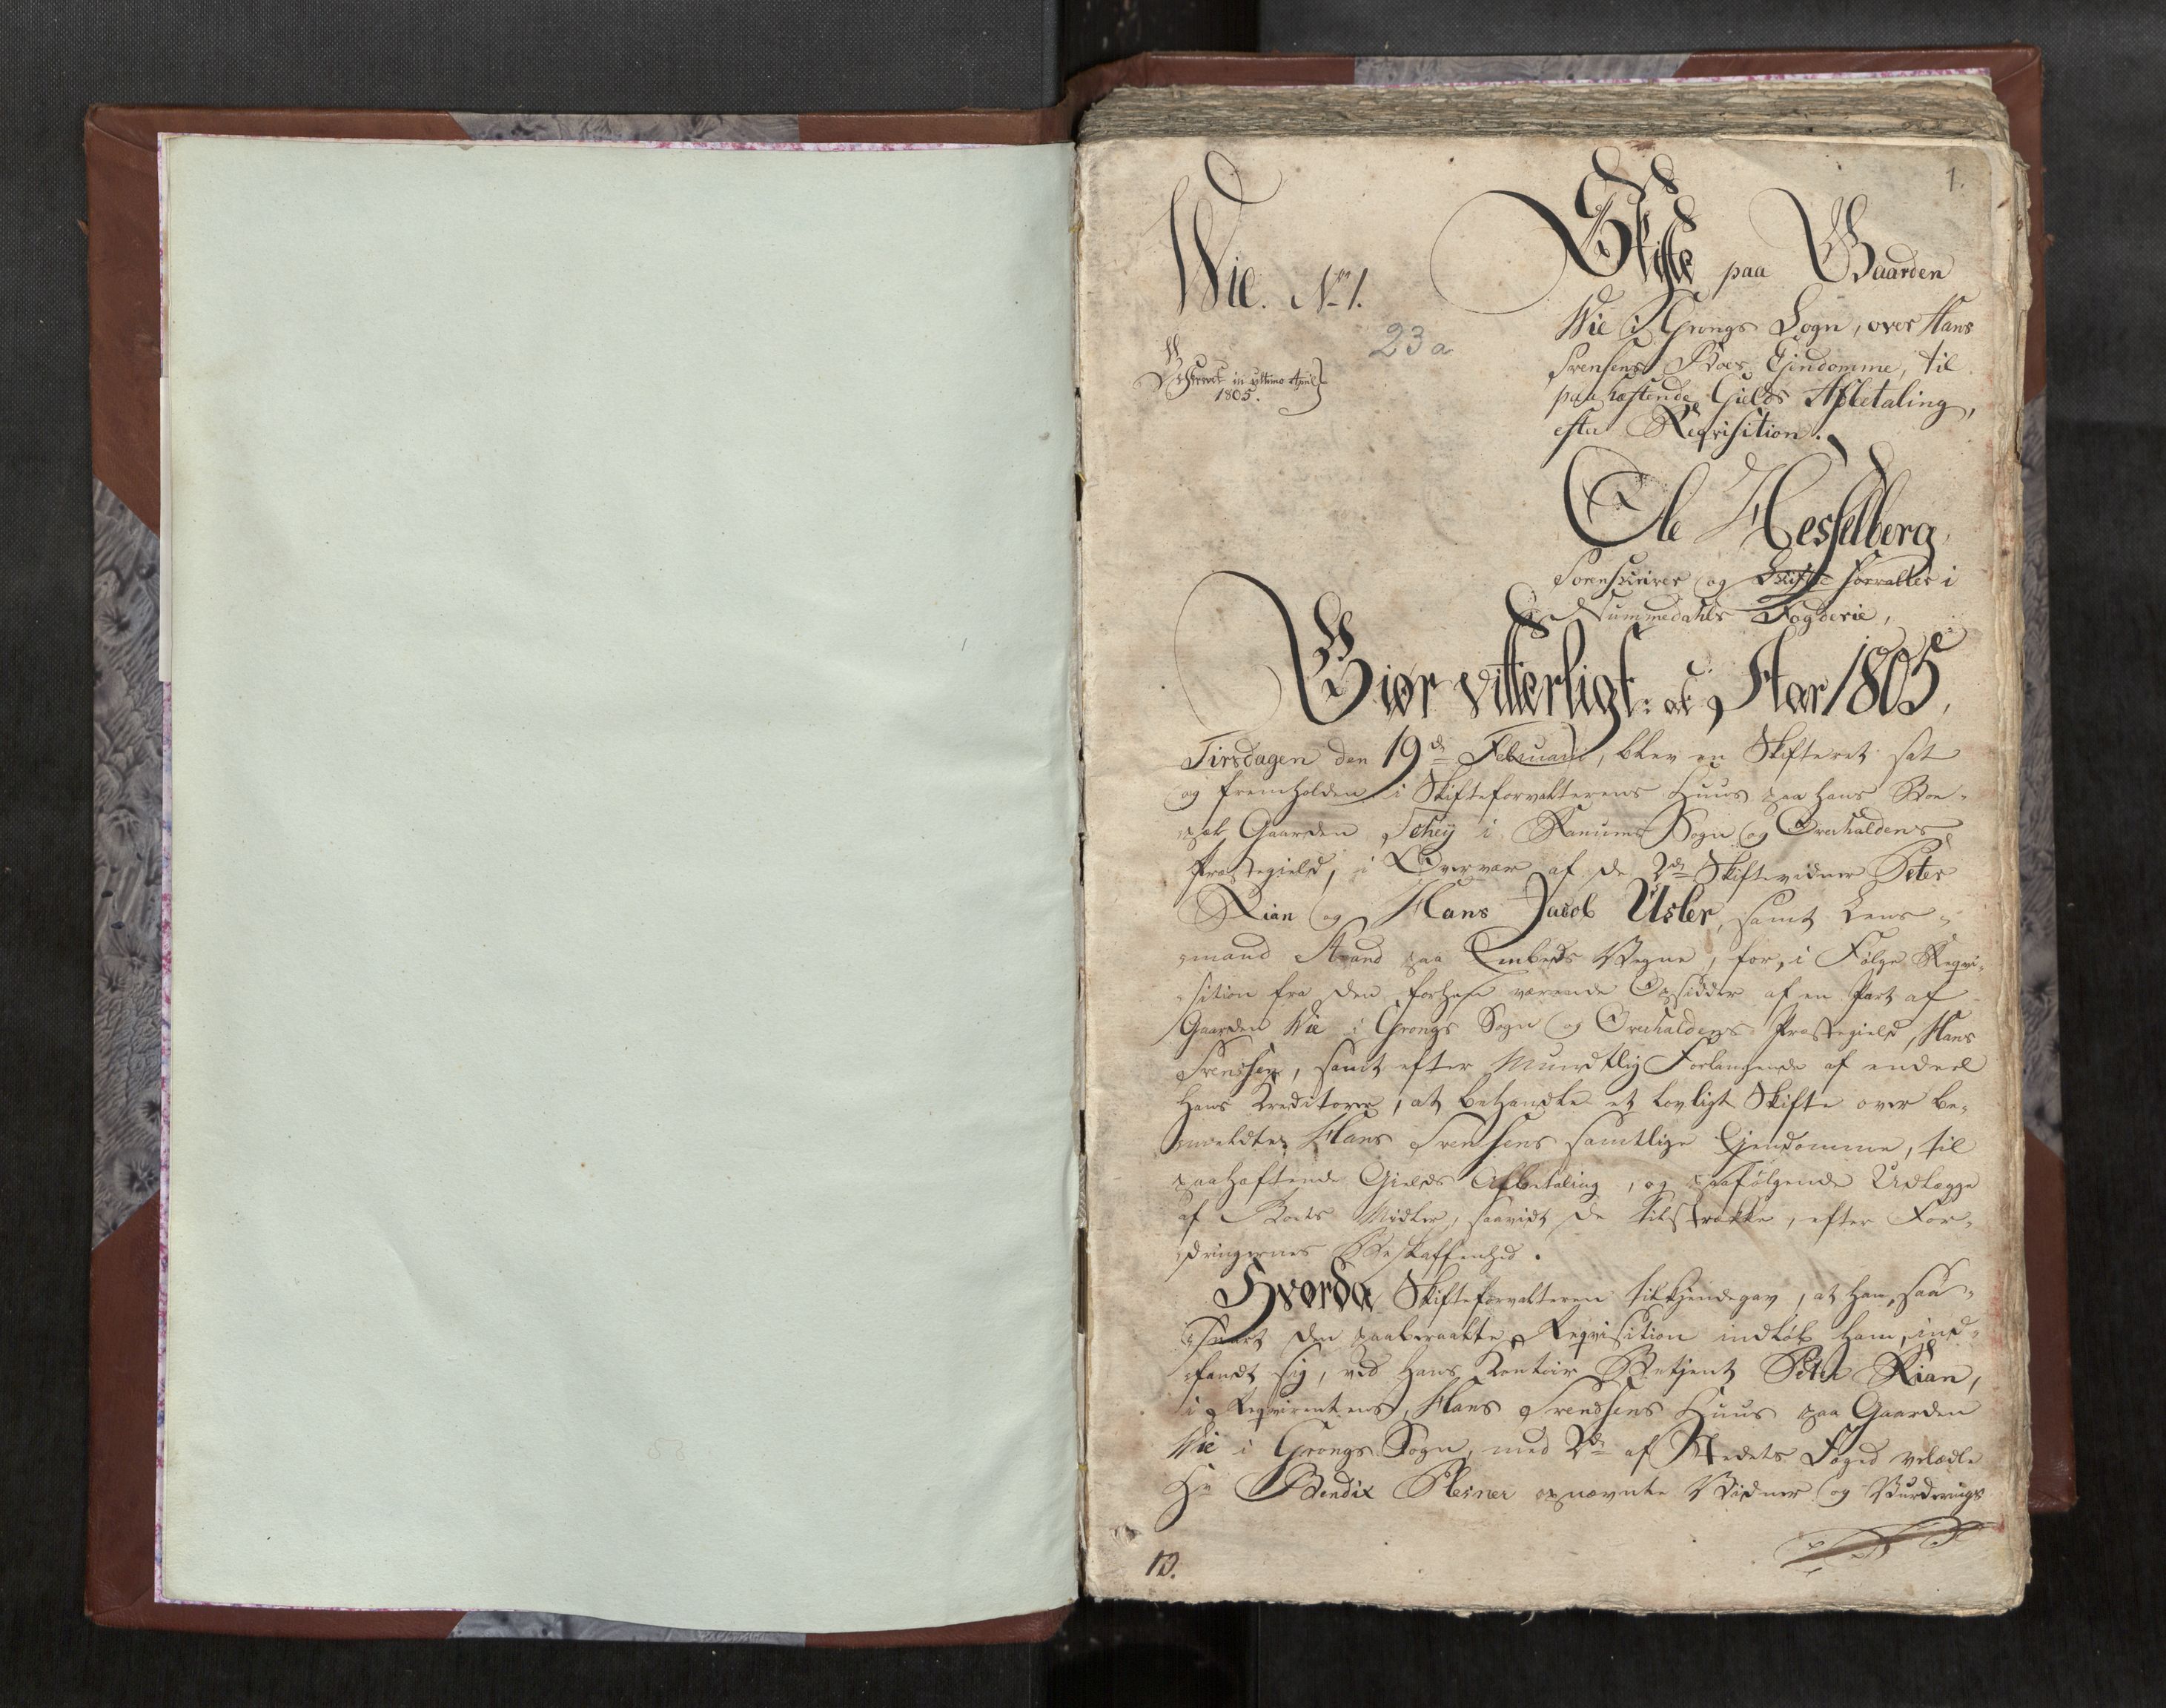 1.
Wie. No 1.
23a
Beskrevet in ultimo April
1805.
Skifte paa Gaarden
Wie i Grongs Sogn, over Hans
Svensens Boes Ejendomme, til
paahæftende Gields Afbetaling,
efter Reqvisition.
Ole Hesselberg,
Sorenskriver og Skifte forvalter i
Nummedahls Fogderie,
Giør vitterligt: at Aar 1805,
Tirsdagen den 19de Februarii, blev en Skifteret sat
og fremholden i Skifteforvalterens Huus paa hans Boe-
pæl Gaarden Schey i Ranums Sogn og Overhaldens
Præstegield, i Overvær af de 2de Skiftevidner Peter
Rian og Hans Jacob Usler, samt Lens-
mand Strand paa Embeds Vegne, for, i Følge Reqvi-
sition fra den forhen værende Opsidder af en Part af
Gaarden Wie i Grongs Sogn og Overhaldens Præstegield, Hans
Svendsen, samt efter Mundtlig Forlangende af endeel
hans Kreditorer, at behandle et lovligt Skifte over be-
meldte Hans Svensens samtlige Ejendomme, til
paahæftende Gields Afbetaling, og paafølgende Udlægge
af Boets Midler, saavidt de tilstrække, efter For-
dringernes Beskaffenhed.
Hvorda Skifteforvalteren tilkjendegav, at han, saa-
snart den paaberaabte Reqvisition indløb ham, ind-
fandt sig, ved hans Contoir Betjent Peter Rian,
i Reqvirentens, Hans Svendsens Huus paa Gaarden
Wie i Grongs Sogn, med 2de af Stedets Foged velædle
Hr Bendix Plesner opnævnte Vidner og Vurderings
1).